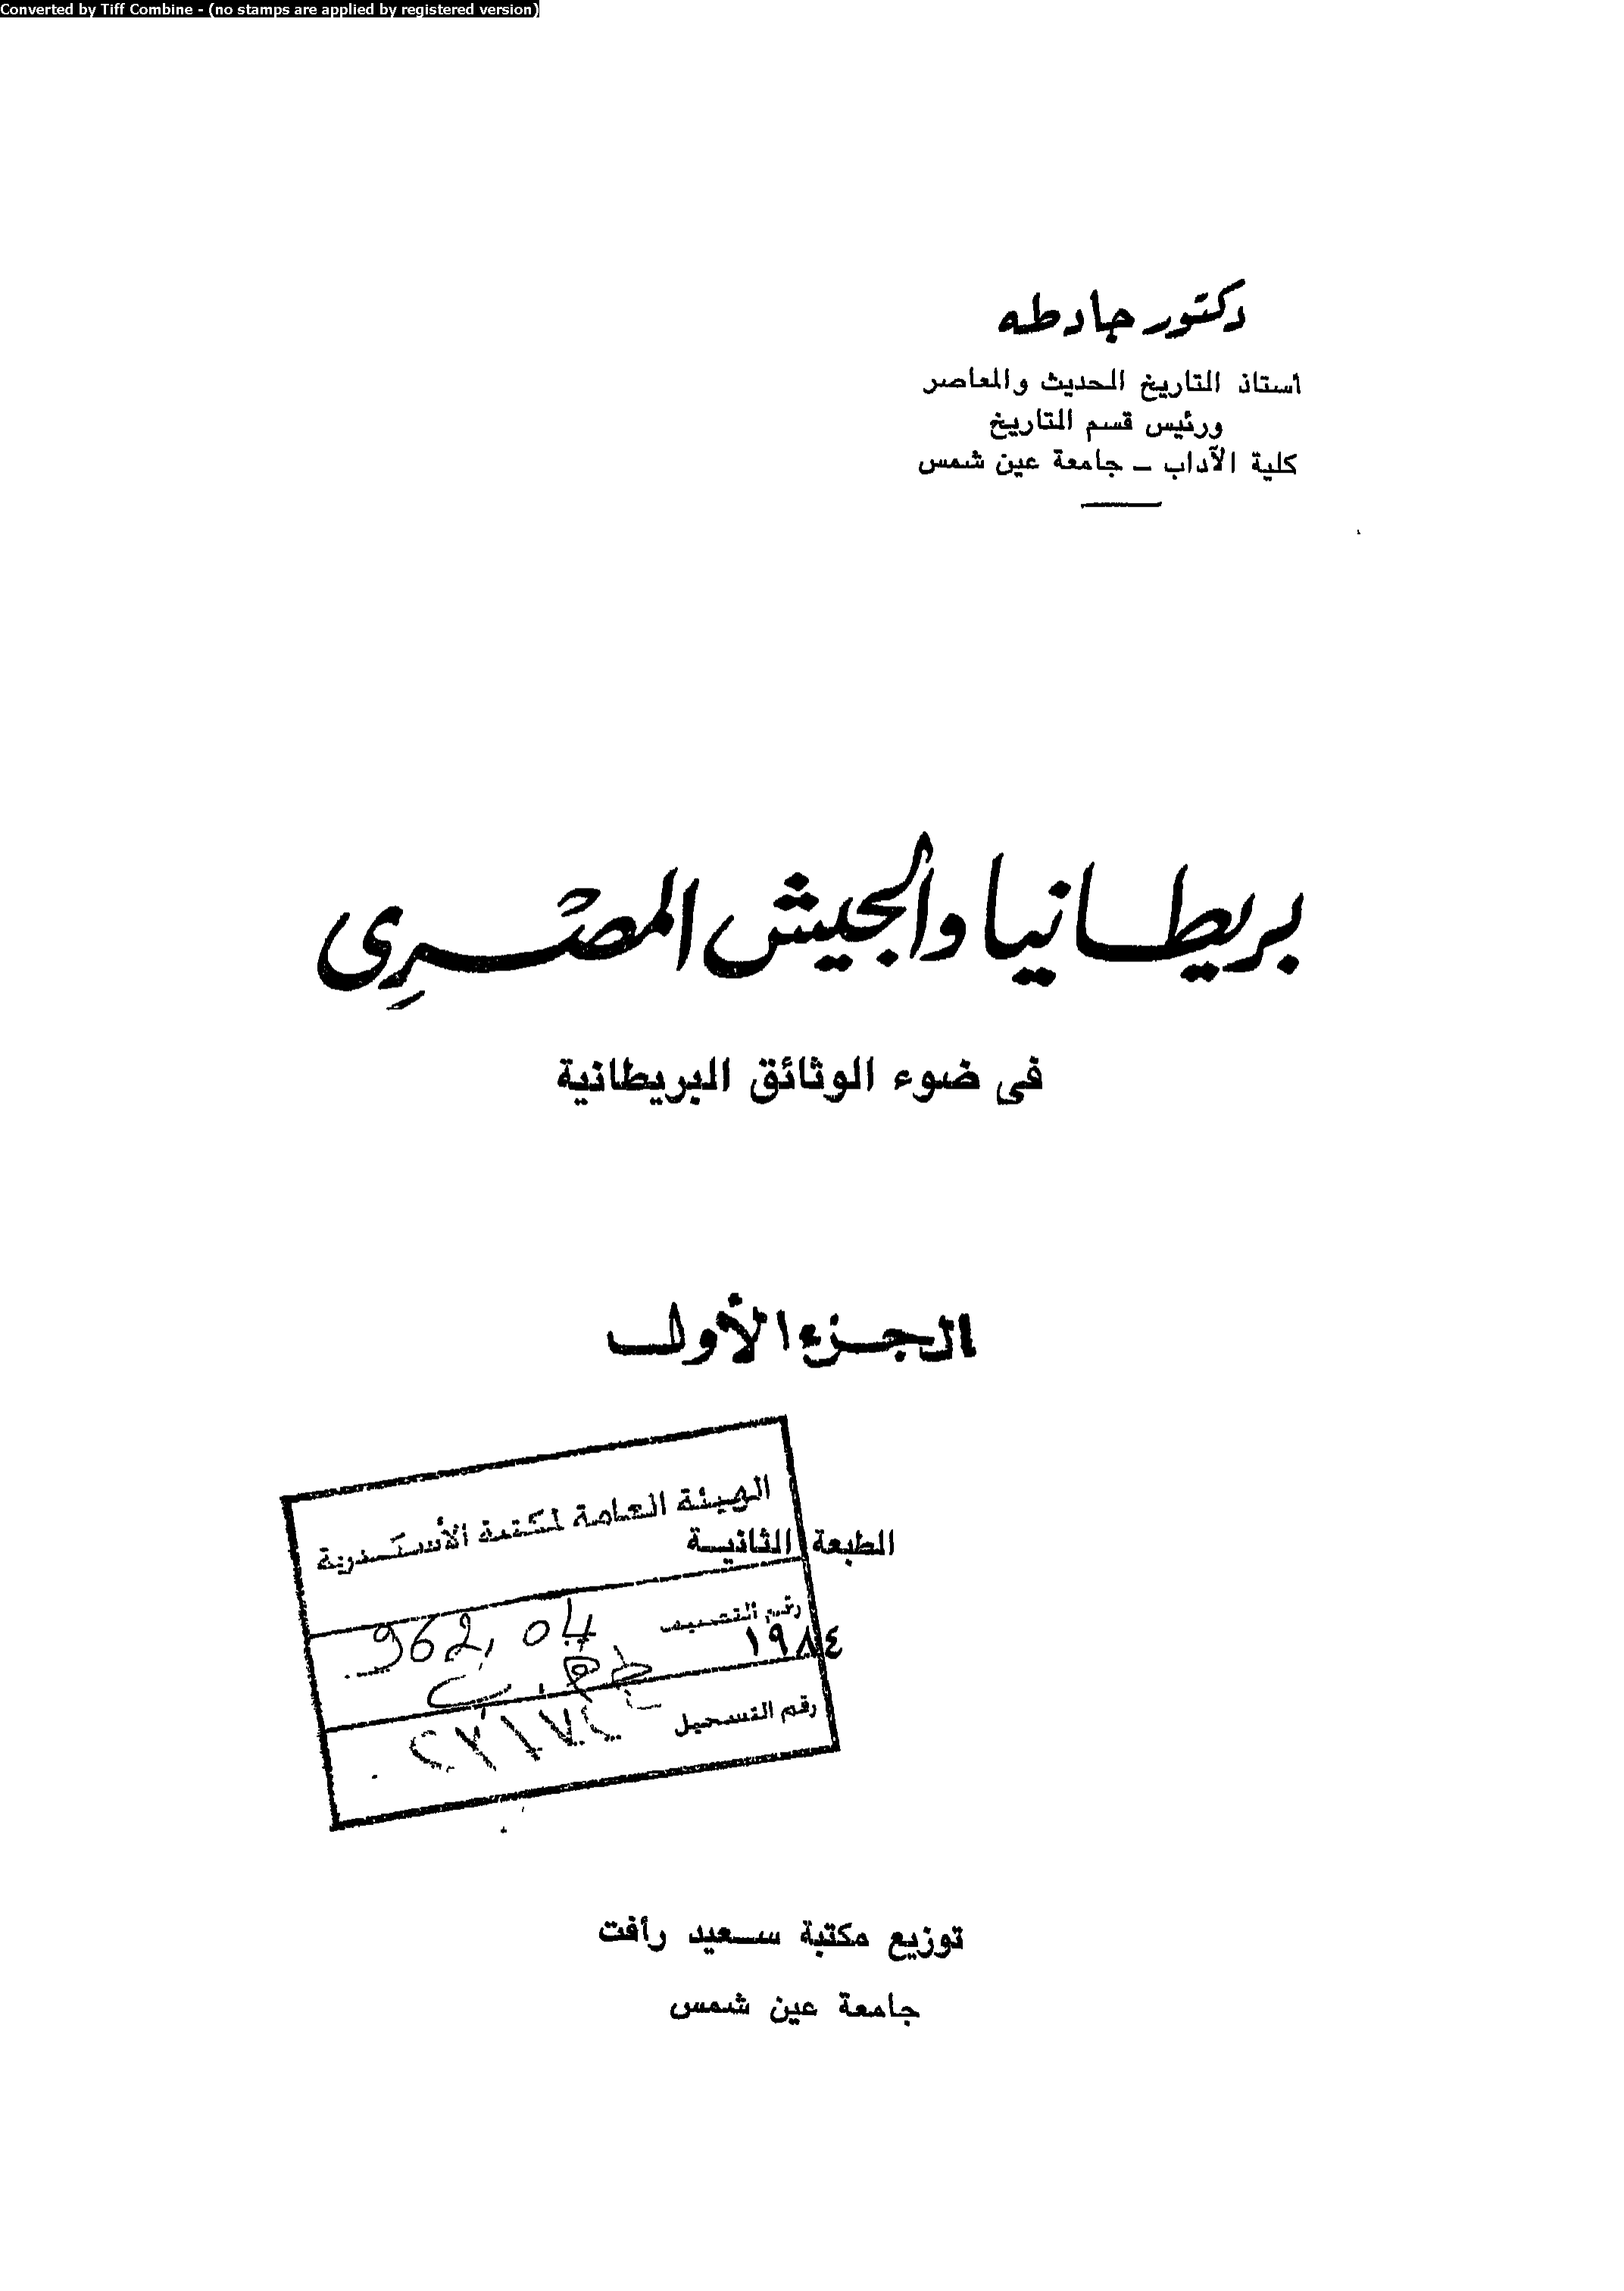 Converted by Tiff Combine - (no stamps are applied by registered version)
دكتور جاد طه
أستاذ التاريخ الحديث والمعاصر
ورئيس قسم التاريخ
كلية الآداب – جامعة عين شمس
بريطانيا والجيش المصرى
فى ضوء الوثائق البريطانية
الجزء الأول
الهيئة العامة لمكتبة الأسكندرية
الطبعة الثانية
رقم التصنيف 962.04
١٩٨٤
رقم التسجيل
توزيع مكتبة سعيد رأفت
جامعة عين شمس